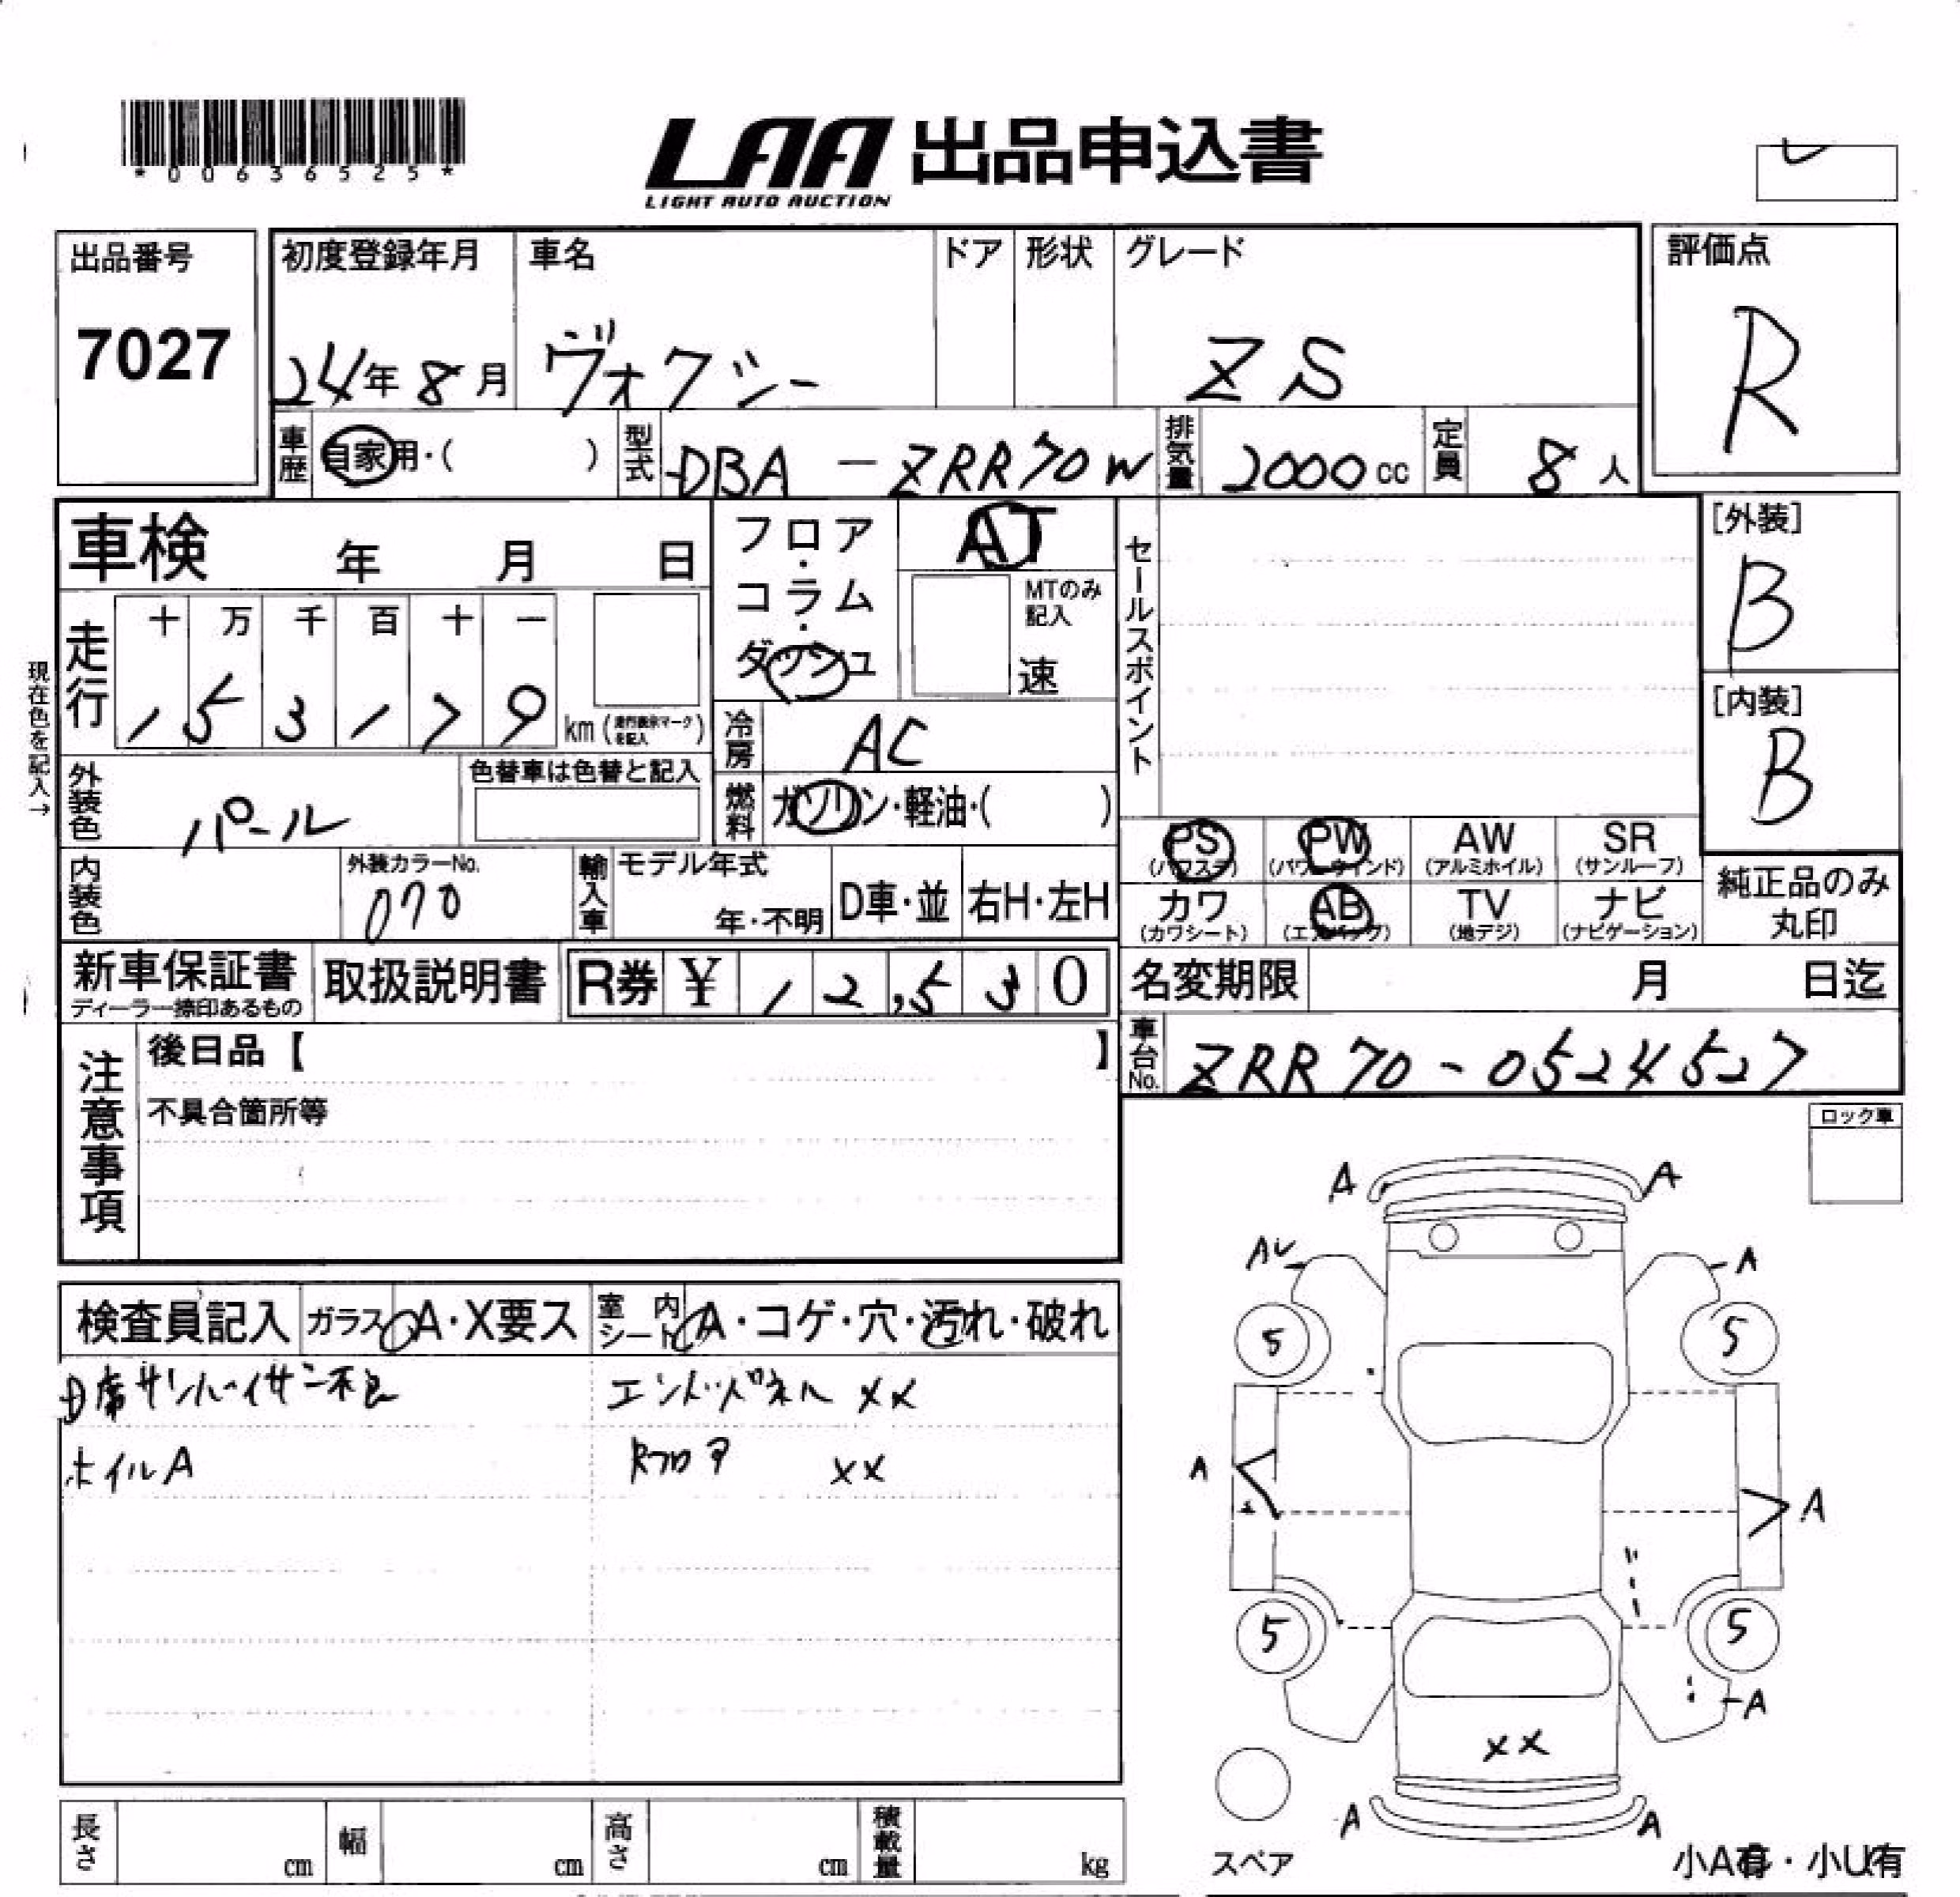 *00636525*
LAA 出品申込書
LIGHT AUTO AUCTION
出品番号
7027
初度登録年月
24年8月
車名
ヴォクシー
ドア
形状
グレード
ZS
評価点
R
車歴
自家用・( )
型式
DBA-ZRR70W
排気量
2000cc
定員
8人
車検 年 月 日
フロア・コラム・ダッシュ
AT
MTのみ記入
速
セールスポイント
[外装]
B
[内装]
B
現在色を記入→
走行
十 万 千 百 十 一
1 5 3 1 7 9 km (走行表示マークを記入)
冷房
AC
外装色
パール
色替車は色替と記入
燃料
ガソリン・軽油・( )
PS (パワステ)
PW (パワーウインド)
AW (アルミホイル)
SR (サンルーフ)
カワ (カワシート)
AB (エアバッグ)
TV (地デジ)
ナビ (ナビゲーション)
純正品のみ丸印
内装色
外装カラーNo.
070
輸入車
モデル年式
年・不明
D車・並
右H・左H
新車保証書
ディーラー捺印あるもの
取扱説明書
R券 ¥ 12,530
名変期限 月 日迄
車台No.
ZRR70-0524527
注意事項
後日品【 】
不具合箇所等
ロック車
検査員記入
ガラス A・X要ス
室内シート A・コゲ・穴・汚れ・破れ
D席サンバイザー不良
エンドパネル XX
ホイルA
Rフロア XX
A A
AU A
5 5
A A
5 5
A
XX
A A
スペア
小A有・小U有
長さ cm
幅 cm
高さ cm
積載量 kg